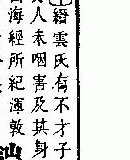 縉雲氏有不才子
人未咽害及其身
海經所紀渾敦